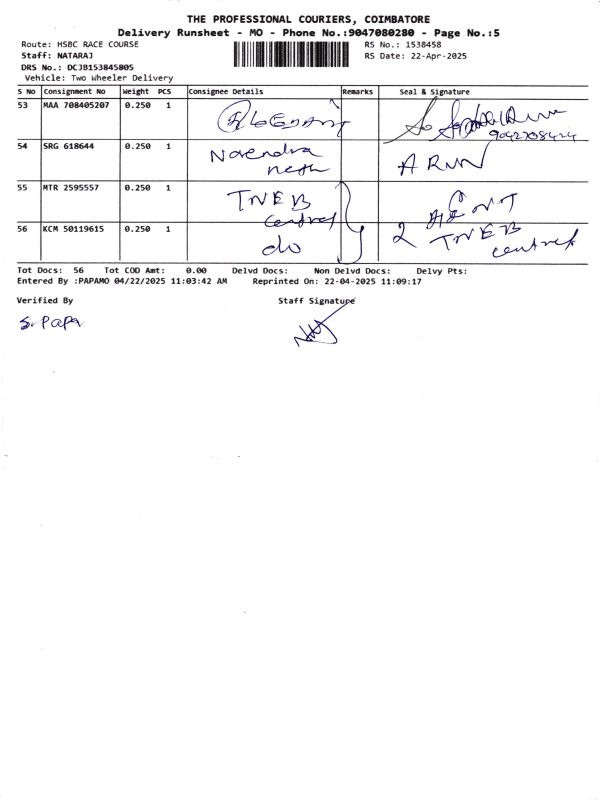 THE PROFESSIONAL COURIERS, COIMBATORE
Delivery Runsheet - MO - Phone No.:9047080280 - Page No.:5
Route: HSBC RACE COURSE RS No.: 1538458
Staff: NATARAJ RS Date: 22-Apr-2025
DRS No.: DCJB153845805
Vehicle: Two Wheeler Delivery
S No Consignment No Weight PCS Consignee Details Remarks Seal & Signature
53 MAA 708405207 0.250 1
54 SRG 618644 0.250 1 Narendra ARUN
55 MTR 2595557 0.250 1 TNEB
central
56 KCM 50119615 0.250 1 do 2 TNEB
central
Tot Docs: 56 Tot COD Amt: 0.00 Delvd Docs: Non Delvd Docs: Delvy Pts:
Entered By :PAPAMO 04/22/2025 11:03:42 AM Reprinted On: 22-04-2025 11:09:17
Verified By Staff Signature
S. Papa